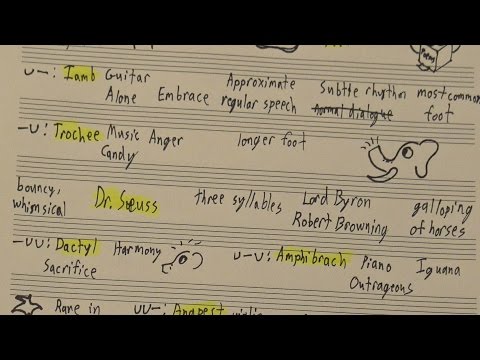 U–: Iamb Guitar Approximate Subtle rhythm most common
Alone Embrace regular speech normal dialogue foot
–U: Trochee Music Anger longer foot
Candy
bouncy, Lord Byron galloping
whimsical Dr. Seuss three syllables Robert Browning of horses
–UU: Dactyl Harmony U–U: Amphibrach Piano Iguana
Sacrifice Outrageous
Rare in UU–: Anapest
Poem